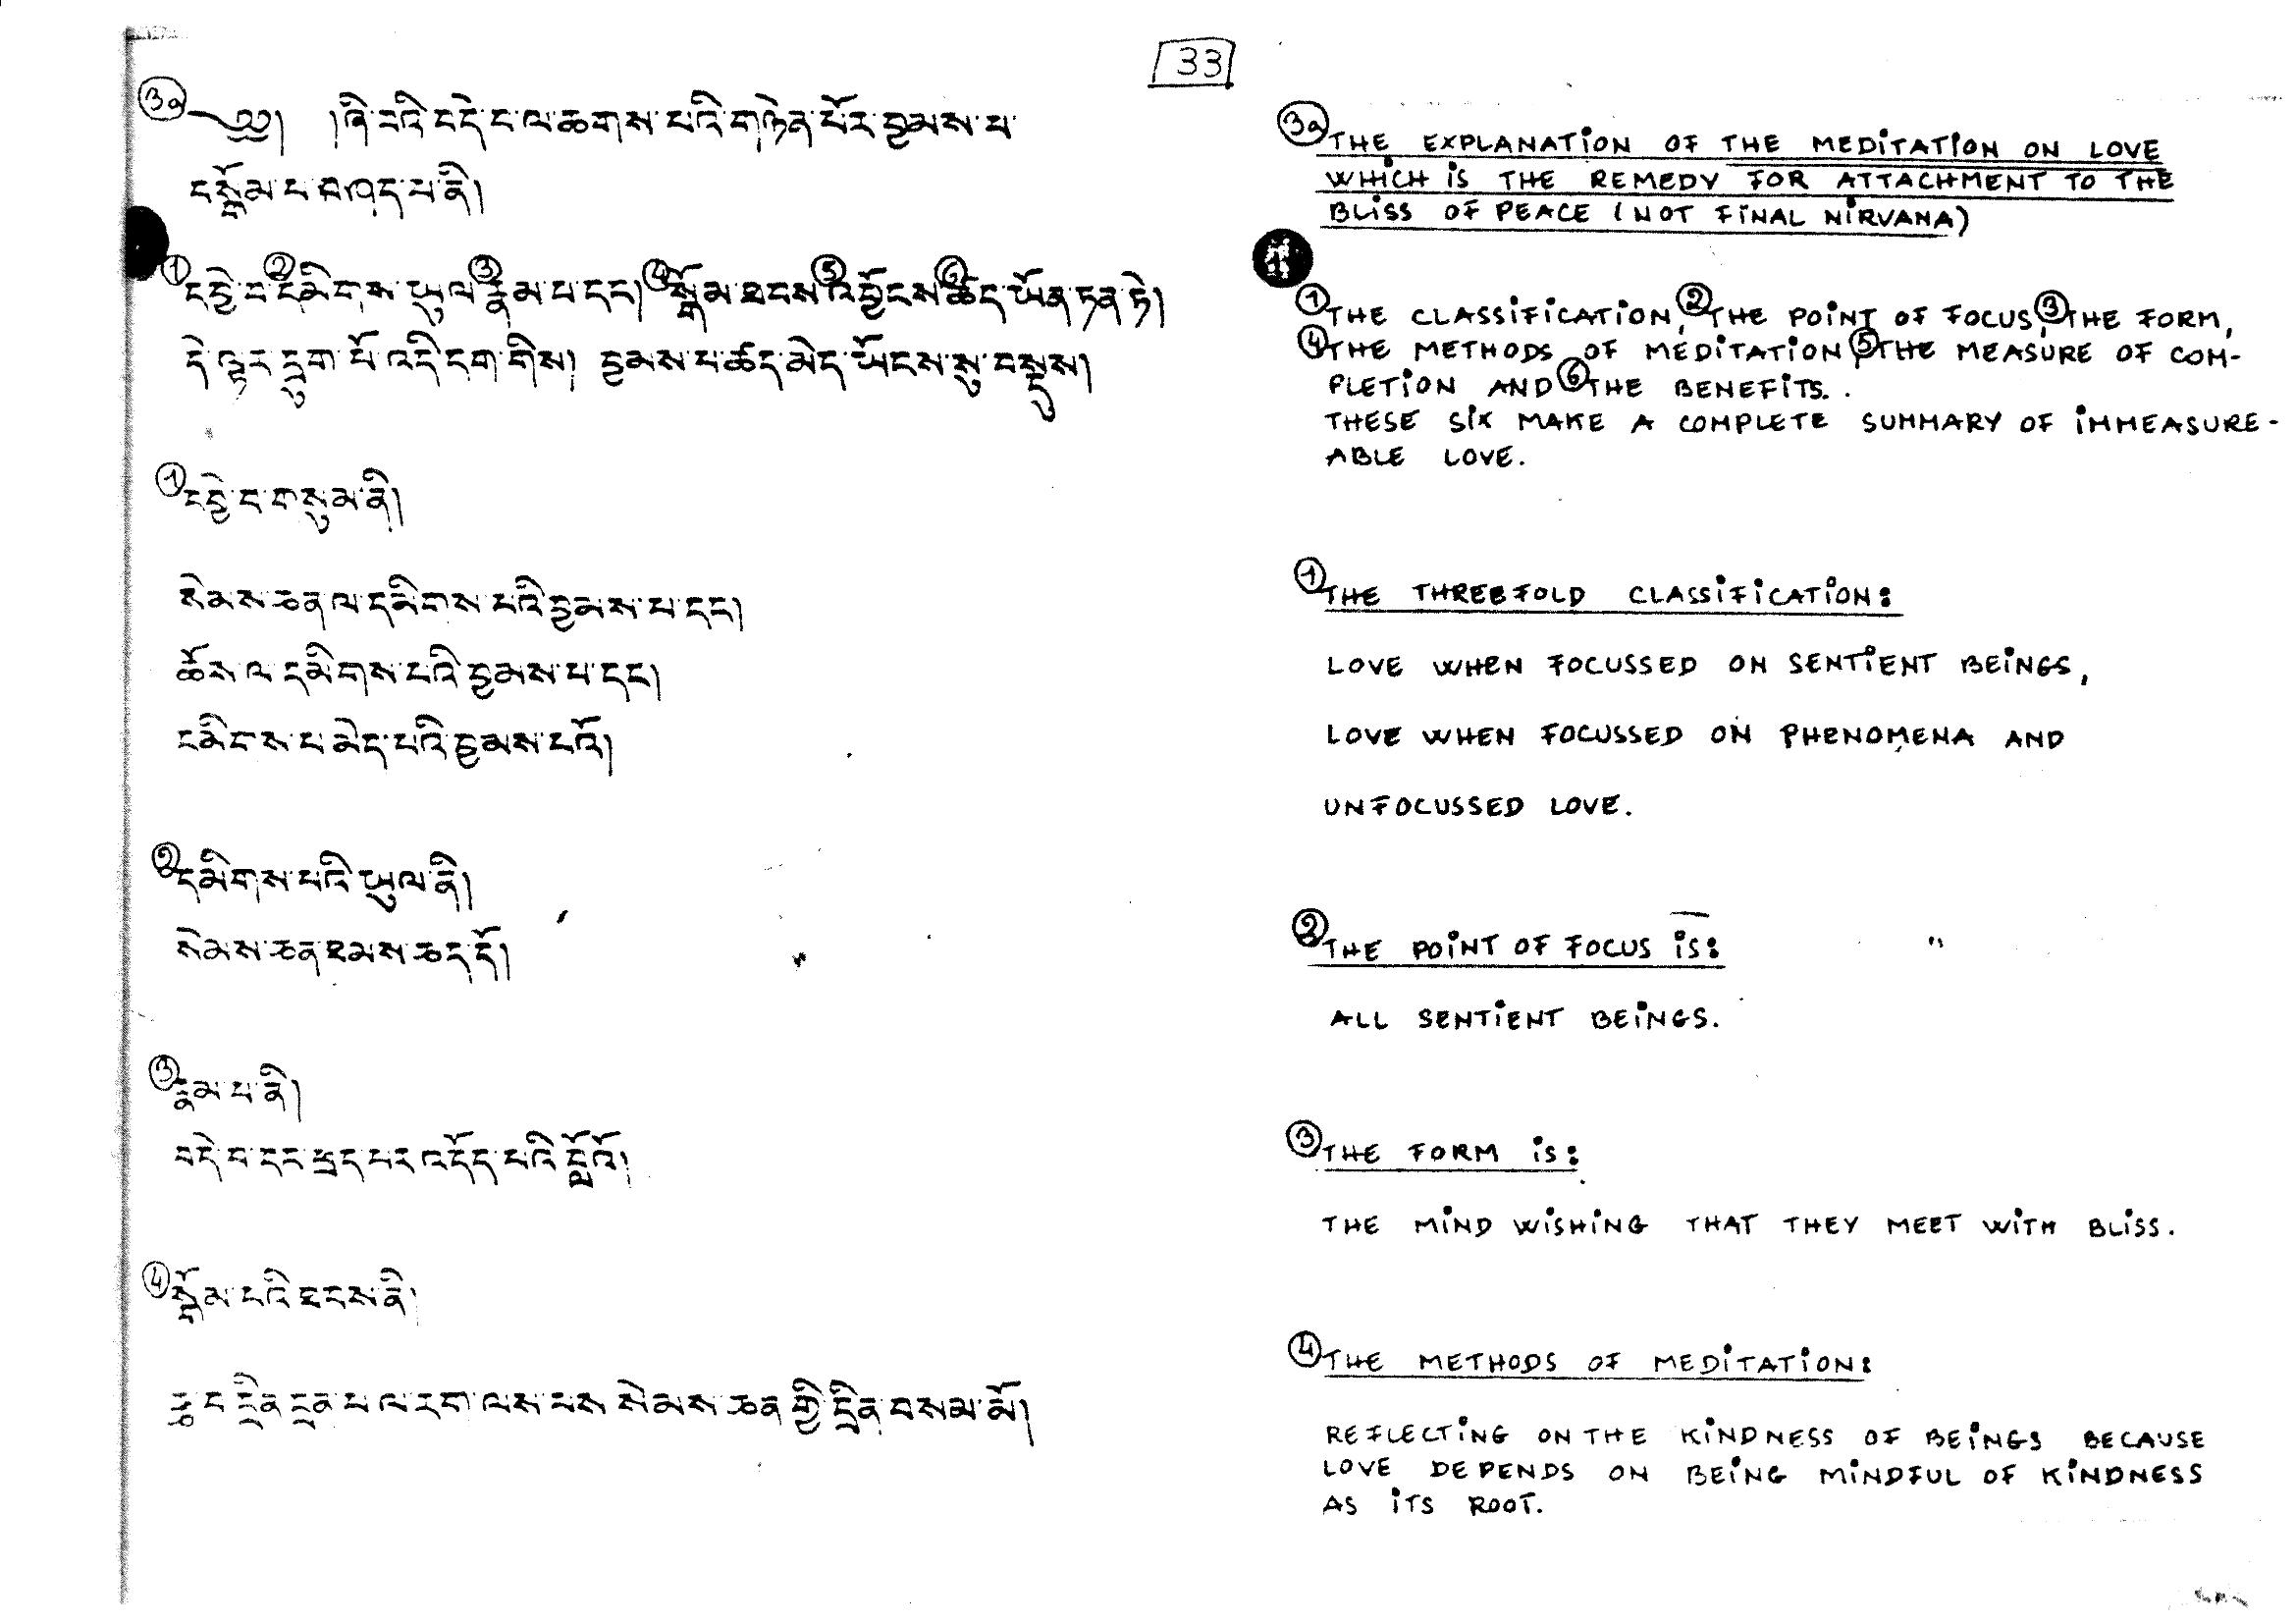 33
3a ༄༅། །ཞི་བའི་བདེ་བ་ལ་ཆགས་པའི་གཉེན་པོར་བྱམས་པ་
བསྒོམ་པ་བཤད་པ་ནི།
① དབྱེ་བ་② དམིགས་ཡུལ་③ རྣམ་པ་དང། ④ སྒོམ་ཐབས་⑤ འབྱོངས་⑥ ཚད་ཡོན་ཏན་ཏེ།
དེ་ལྟར་དྲུག་པོ་འདི་དག་གིས། བྱམས་པ་ཚད་མེད་ཡོངས་སུ་བསྡུས།
① དབྱེ་བ་གསུམ་ནི།
སེམས་ཅན་ལ་དམིགས་པའི་བྱམས་པ་དང།
ཆོས་ལ་དམིགས་པའི་བྱམས་པ་དང།
དམིགས་པ་མེད་པའི་བྱམས་པའོ།
② དམིགས་པའི་ཡུལ་ནི།
སེམས་ཅན་ཐམས་ཅད་དོ།
③ རྣམ་པ་ནི།
བདེ་བ་དང་ཕྲད་པར་འདོད་པའི་བློའོ།
④ སྒོམ་པའི་ཐབས་ནི།
རྩ་བ་དྲིན་དྲན་པ་ལ་རག་ལས་པས་སེམས་ཅན་གྱི་དྲིན་བསམ་མོ།
3a THE EXPLANATION OF THE MEDITATION ON LOVE
WHICH IS THE REMEDY FOR ATTACHMENT TO THE
BLISS OF PEACE (NOT FINAL NIRVANA)
① THE CLASSIFICATION, ② THE POINT OF FOCUS, ③ THE FORM,
④ THE METHODS OF MEDITATION ⑤ THE MEASURE OF COM-
PLETION AND ⑥ THE BENEFITS..
THESE SIX MAKE A COMPLETE SUMMARY OF IMMEASURE-
ABLE LOVE.
① THE THREEFOLD CLASSIFICATION:
LOVE WHEN FOCUSSED ON SENTIENT BEINGS,
LOVE WHEN FOCUSSED ON PHENOMENA AND
UNFOCUSSED LOVE.
② THE POINT OF FOCUS IS:
ALL SENTIENT BEINGS.
③ THE FORM IS:
THE MIND WISHING THAT THEY MEET WITH BLISS.
④ THE METHODS OF MEDITATION:
REFLECTING ON THE KINDNESS OF BEINGS BECAUSE
LOVE DEPENDS ON BEING MINDFUL OF KINDNESS
AS ITS ROOT.